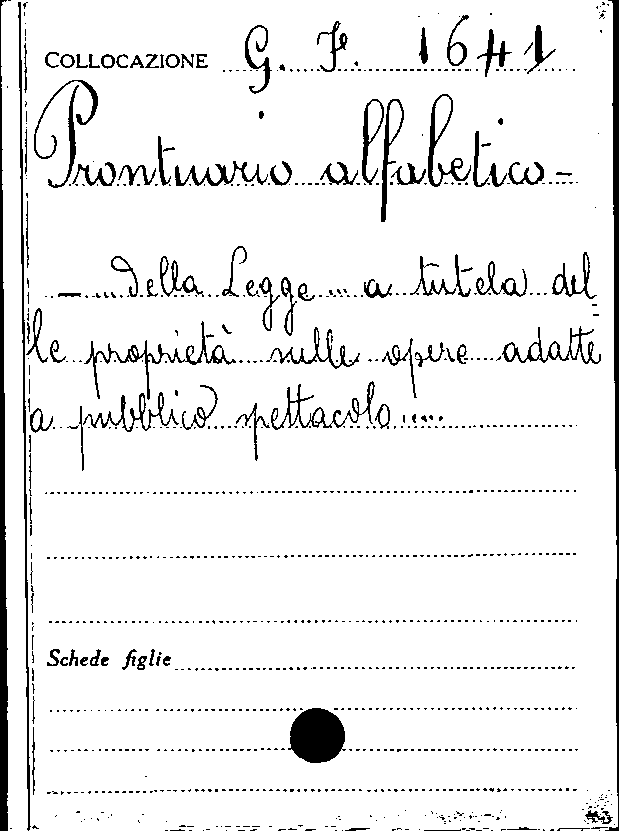 COLLOCAZIONE G. F. 1641
Prontuario alfabetico-
— ... della Legge ... a tutela del=
le proprietà sulle opere adatte
a pubblico spettacolo .....
Schede figlie